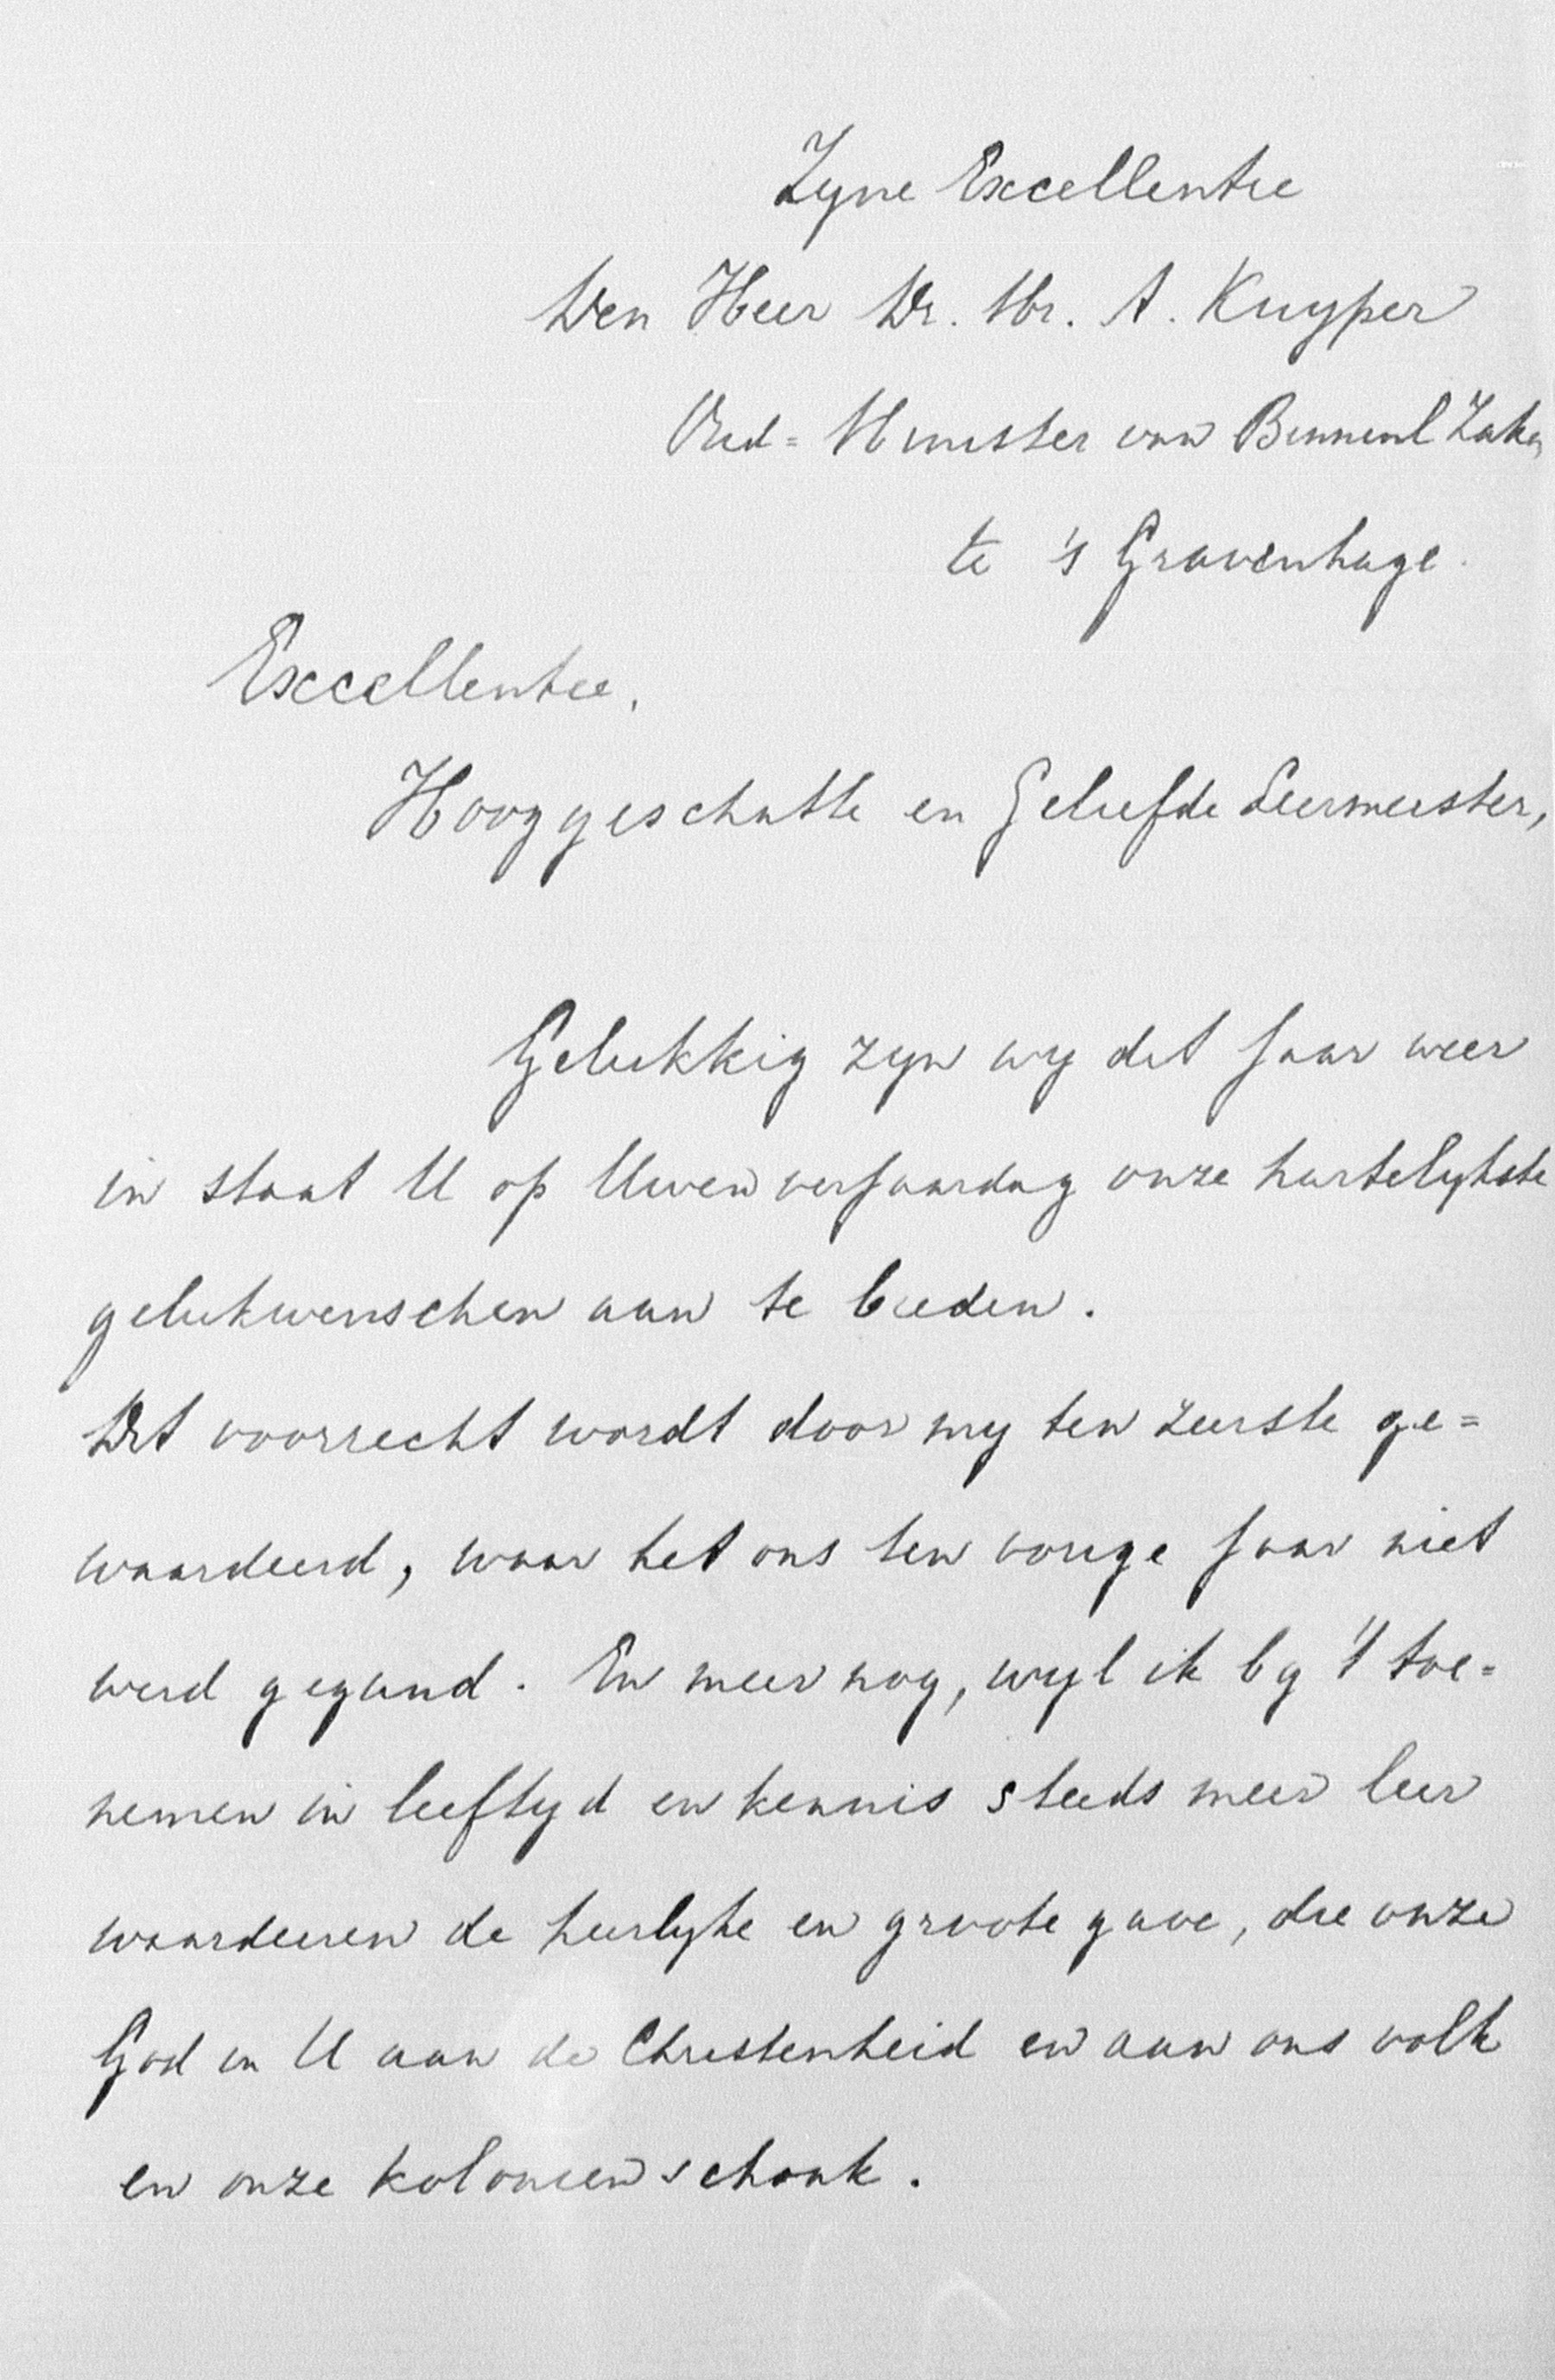 Zyne Excellentie
Den Heer Dr. Mr. A. Kuyper
Oud=Minister van Binnenl Zaken
te 's Gravenhage.
Excellentie,
Hooggeschatte en Geliefde Leermeester,
Gelukkig zyn wy dit jaar weer
in staat U op Uwen verjaardag onze hartelykste
gelukwenschen aan te bieden.
Dit voorrecht wordt door my ten zeerste ge=
waardeerd, waar het ons ten vorige jaar niet
werd gegund. En meer nog, wyl ik by 't toe=
nemen in leeftyd en kennis steeds meer leer
waardeeren de heerlyke en groote gave, die onze
God in U aan de Christenheid en aan ons volk
en onze kolonieen schonk.